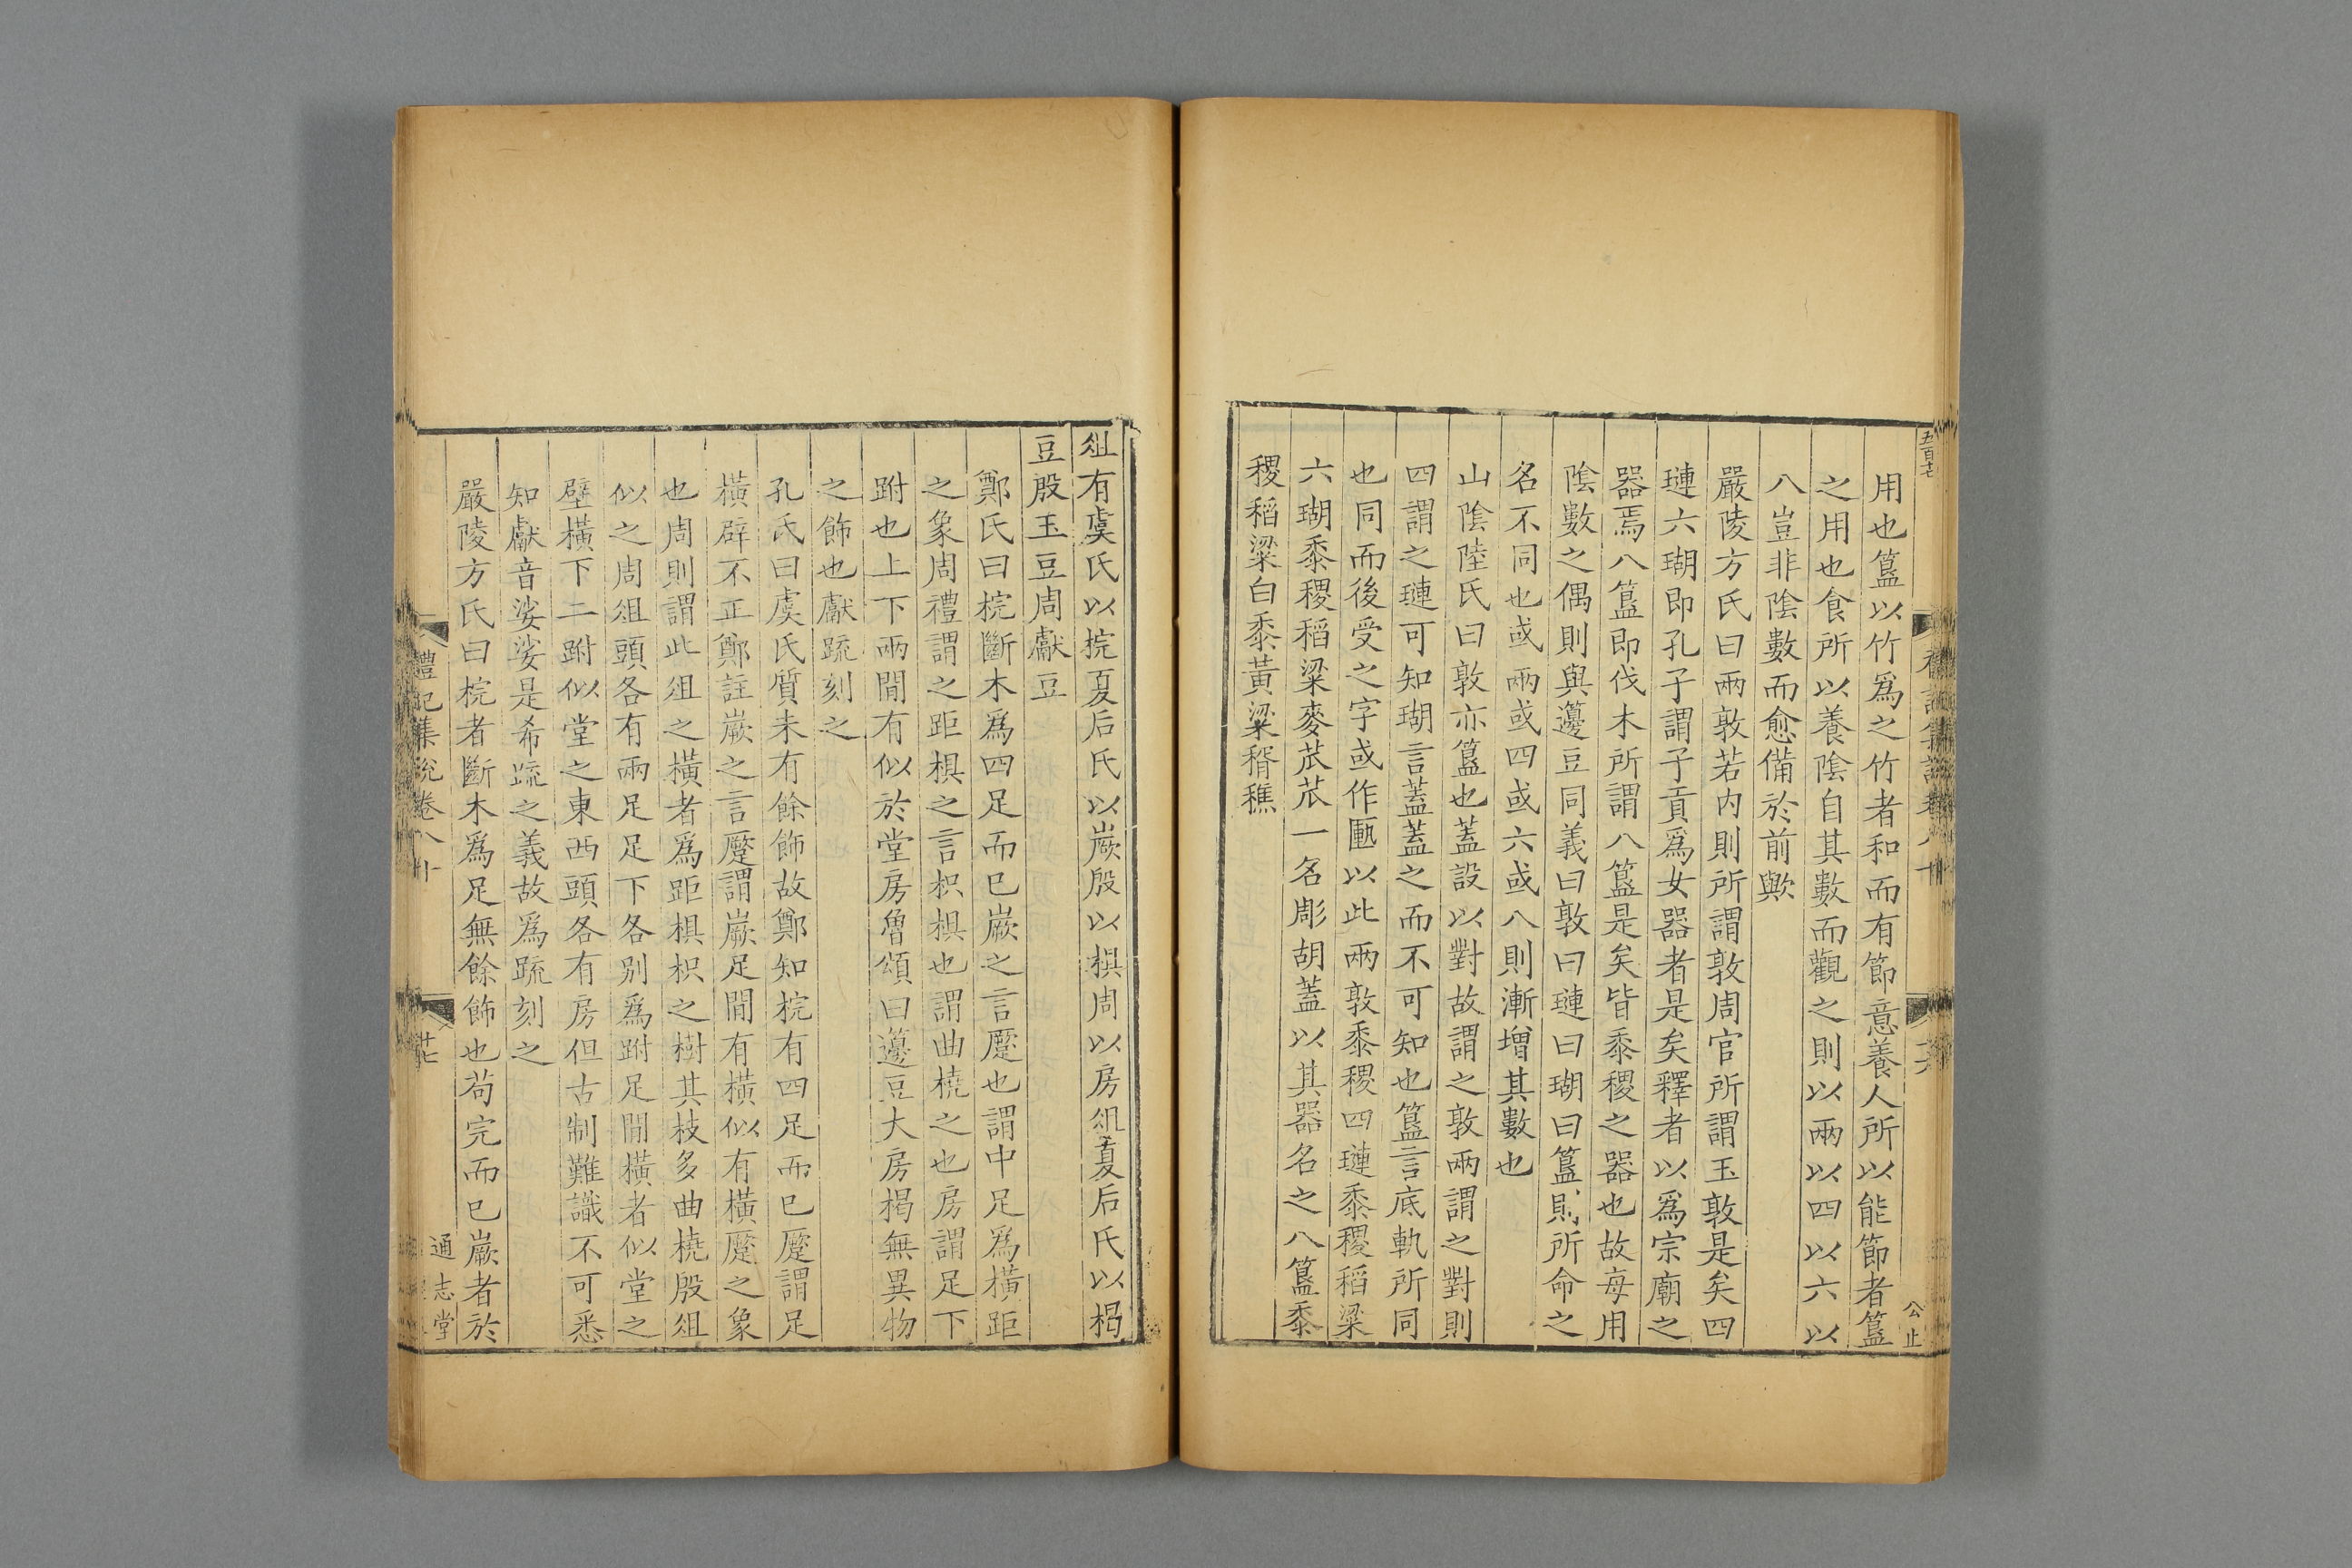 五百七
用也簋以竹爲之竹者和而有節意養人所以能節者簋
之用也食所以養陰自其數而觀之則以兩以四以六以
八豈非陰數而愈備於前歟
嚴陵方氏曰兩敦若内則所謂敦周官所謂玉敦是矣四
璉六瑚即孔子謂子貢爲女器者是矣釋者以爲宗廟之
器焉八簋即伐木所謂八簋是矣皆黍稷之器也故每用
陰數之偶則與籩豆同義曰敦曰璉曰瑚曰簋則所命之
名不同也或兩或四或六或八則漸增其數也
山陰陸氏曰敦亦簋也蓋設以對故謂之敦兩謂之對則
四謂之璉可知瑚言蓋蓋之而不可知也簋言底軌所同
也同而後受之字或作匭以此兩敦黍稷四璉黍稷稻粱
六瑚黍稷稻粱麥苽苽一名彫胡蓋以其器名之八簋黍
稷稻粱白黍黃粱稰穛
公止
俎有虞氏以梡夏后氏以嶡殷以椇周以房俎夏后氏以楬
豆殷玉豆周獻豆
鄭氏曰梡斷木爲四足而已嶡之言蹷也謂中足爲橫距
之象周禮謂之距椇之言枳椇也謂曲橈之也房謂足下
跗也上下兩閒有似於堂房魯頌曰籩豆大房楬無異物
之飾也獻疏刻之
孔氏曰虞氏質未有餘飾故鄭知梡有四足而已蹷謂足
橫辟不正鄭註嶡之言蹷謂嶡足閒有橫似有橫蹷之象
也周則謂此俎之橫者爲距椇枳之樹其枝多曲橈殷俎
似之周俎頭各有兩足足下各别爲跗足閒橫者似堂之
壁橫下二跗似堂之東西頭各有房但古制難識不可悉
知獻音娑娑是希疏之義故爲疏刻之
嚴陵方氏曰梡者斷木爲足無餘飾也苟完而已嶡者於
禮記集說卷八十
廿七
通志堂